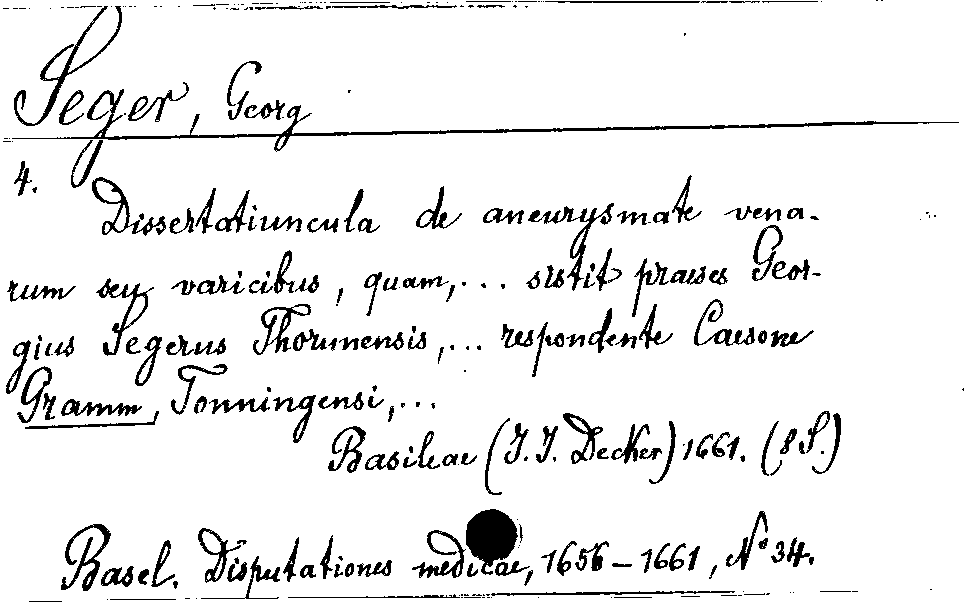 Seger, Georg
4.
Dissertatiuncula de aneurysmate vena-
rum seu varicibus, quam,... sistit praeses Geor-
gius Segerus Thorunensis,... respondente Caesone
Gramm, Tonningensi,...
Basileae (J. J. Decker) 1661. (8 S.)
Basel. Disputationes medicae, 1656-1661, No 34.